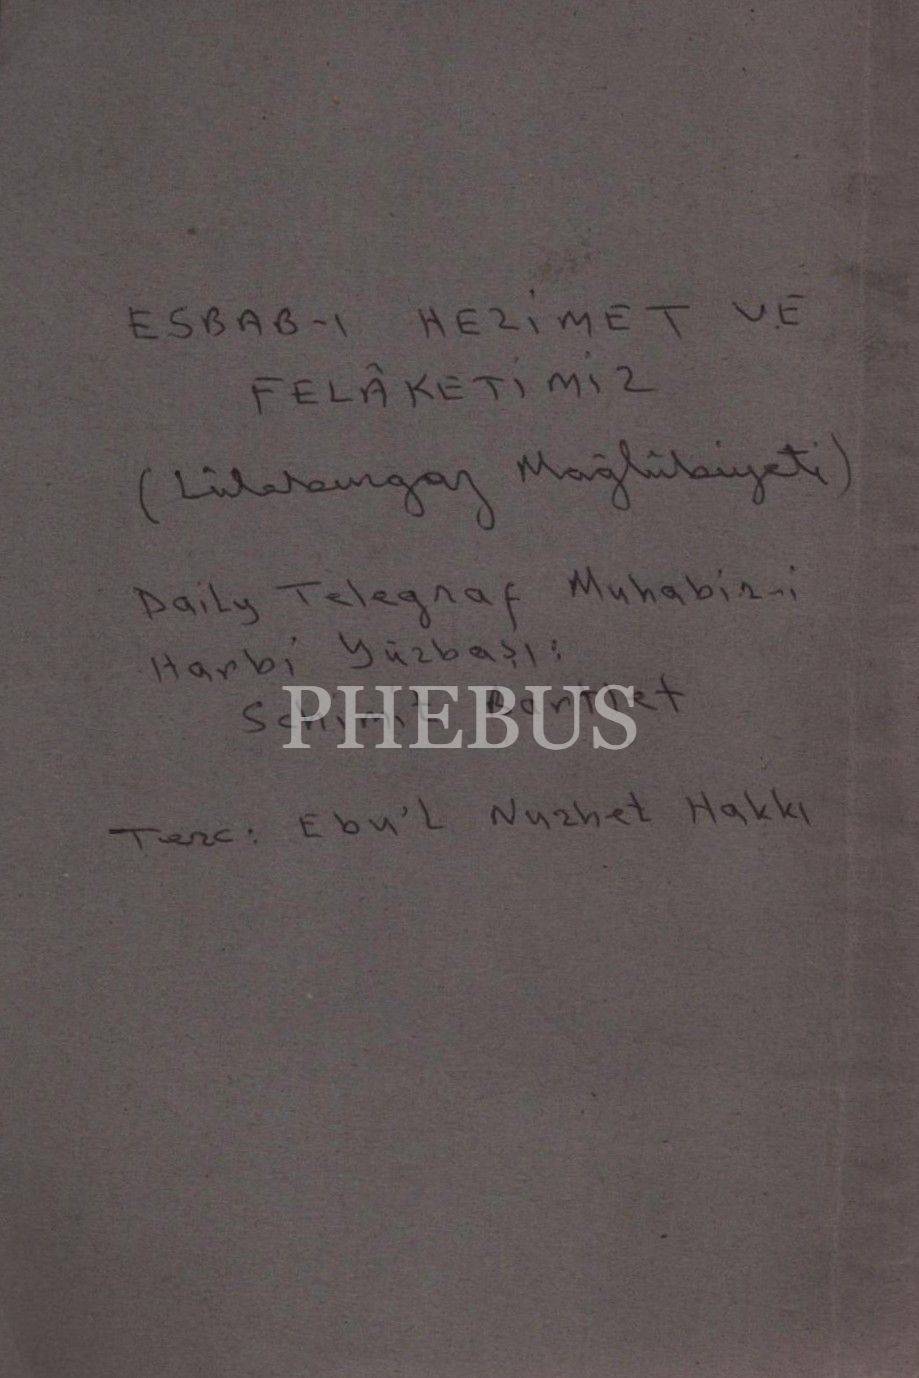 ESBAB-I HEZİMET VE
FELÂKETİMİZ
(Lüleburgaz Mağlûbiyeti)
Daily Telegraf Muhabir-i
Harbi Yüzbaşı:
PHEBUS
Terc: Ebu'l Nuzhet Hakkı